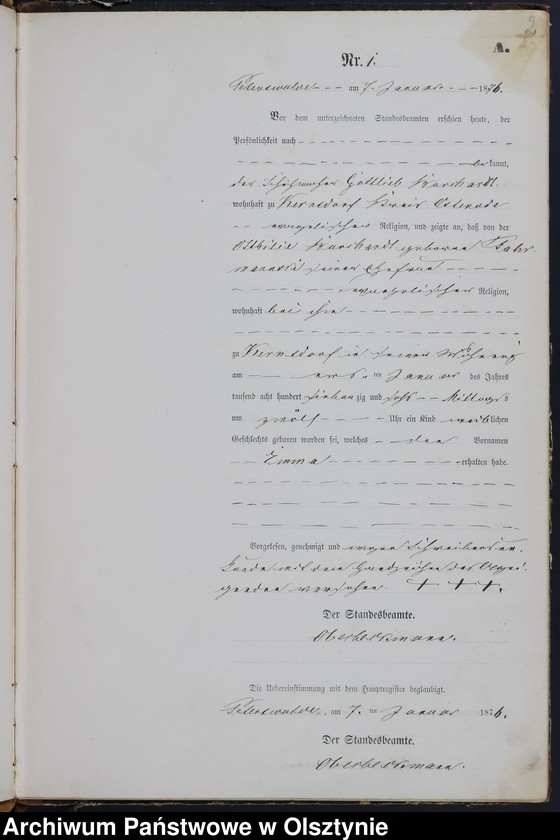 2
A.
Nr. 1.
Peterswalde am 7. Januar 1876.
Vor dem unterzeichneten Standesbeamten erschien heute, der
Persönlichkeit nach
bekannt,
der Gottlieb
wohnhaft zu Kreis Osterode
evangelischer Religion, und zeigte an, daß von der
geborene
seiner Ehefrau
evangelischer Religion,
wohnhaft bei ihm
zu in seiner Wohnung
am ten Januar des Jahres
tausend acht hundert siebenzig und sechs Mittags
um zwölf Uhr ein Kind weiblichen
Geschlechts geboren worden sei, welches den Vornamen
Emma erhalten habe.
Vorgelesen, genehmigt und wegen Schreibensun-
kunde mit dem Handzeichen des Anzei-
genden versehen. + + +.
Der Standesbeamte.
Oberbeckmann.
Die Uebereinstimmung mit dem Hauptregister beglaubigt.
Peterswalde, am 7. ten Januar 1876.
Der Standesbeamte.
Oberbeckmann.
Archiwum Państwowe w Olsztynie